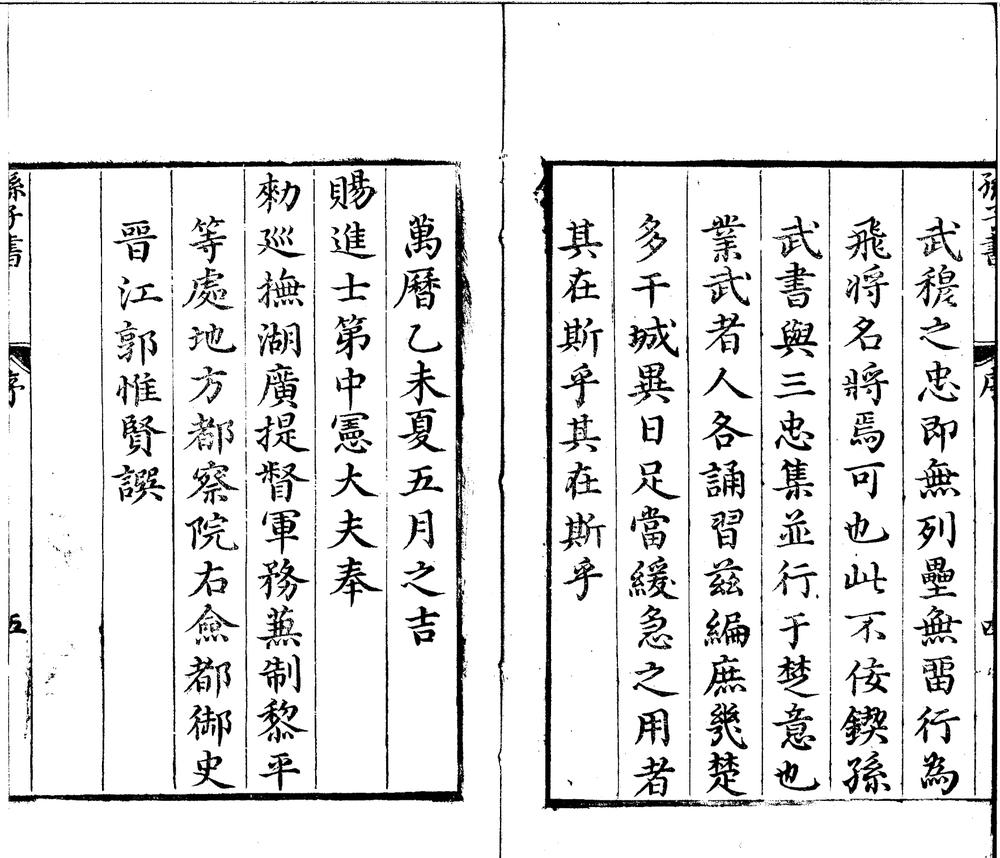 孫子書
序
四
武穆之忠即無列壘無畱行為
飛将名將焉可也此不佞鍥孫
武書與三忠集並行于楚意也
業武者人各誦習兹編庶㡬楚
多干城異日足當緩急之用者
其在斯乎其在斯乎
萬曆乙未夏五月之吉
賜進士第中憲大夫奉
勑廵撫湖廣提督軍務蕪制黎平
等處地方都察院右僉都御史
晉江郭惟賢譔
孫子書
序
五